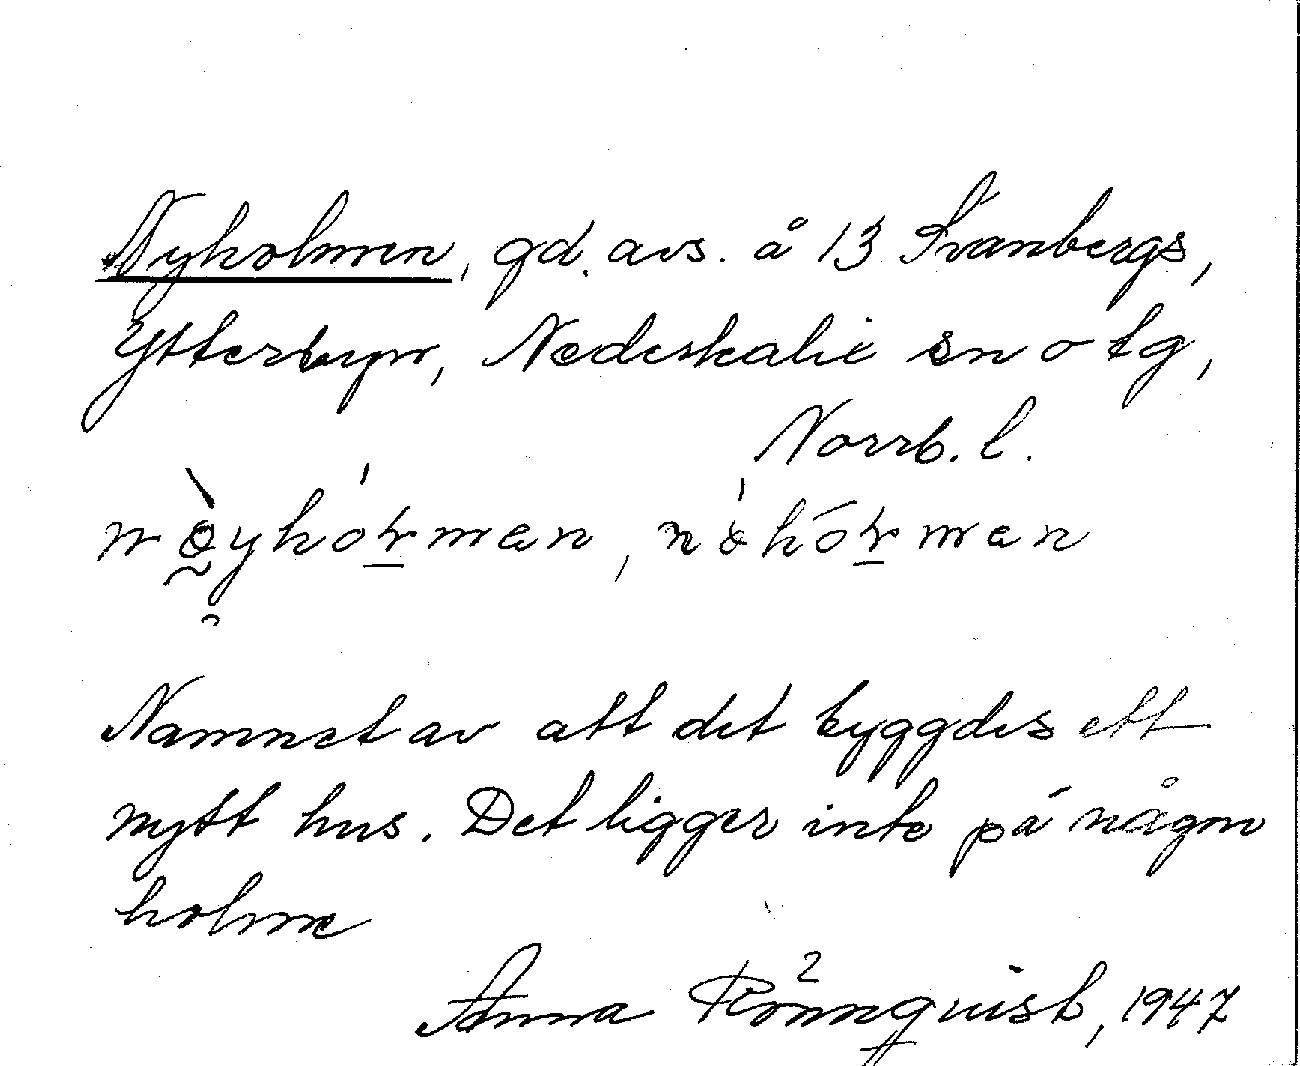 Nyholmen, gd. avs. å 13 Svanbergs,
Ytterbyn, Nederkalix sn o tg,
Norrb. l.
Namnet av att det byggdes ett
nytt hus. Det ligger inte på någon
holme
Anna Rönnquist, 1947